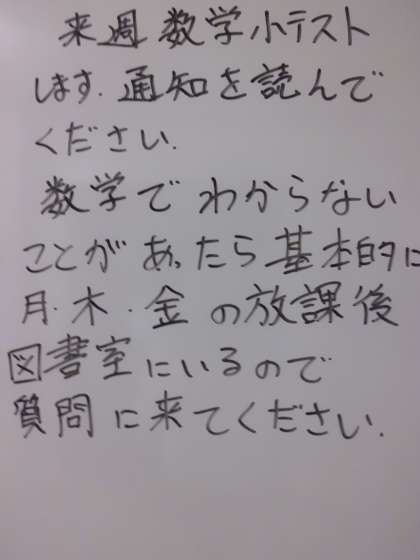 来週 数学小テスト
します. 通知を読んで
ください.
数学で わからない
ことが あったら 基本的に
月・木・金 の放課後
図書室にいるので
質問 に来てください.